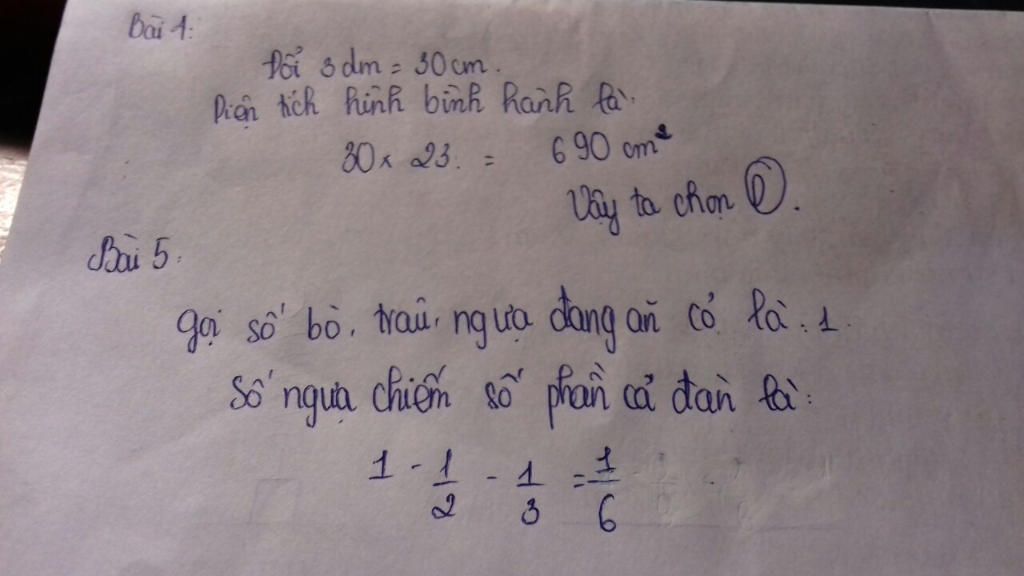 Bài 1:
Đổi 3 dm = 30 cm.
Diện tích hình bình hành là:
30 x 23. = 690 cm²
Vậy ta chọn Ⓓ.
Bài 5:
Gọi số bò, trâu, ngựa đang ăn cỏ là: 1.
Số ngựa chiếm số phần cả đàn là:
1 - 1/2 - 1/3 = 1/6